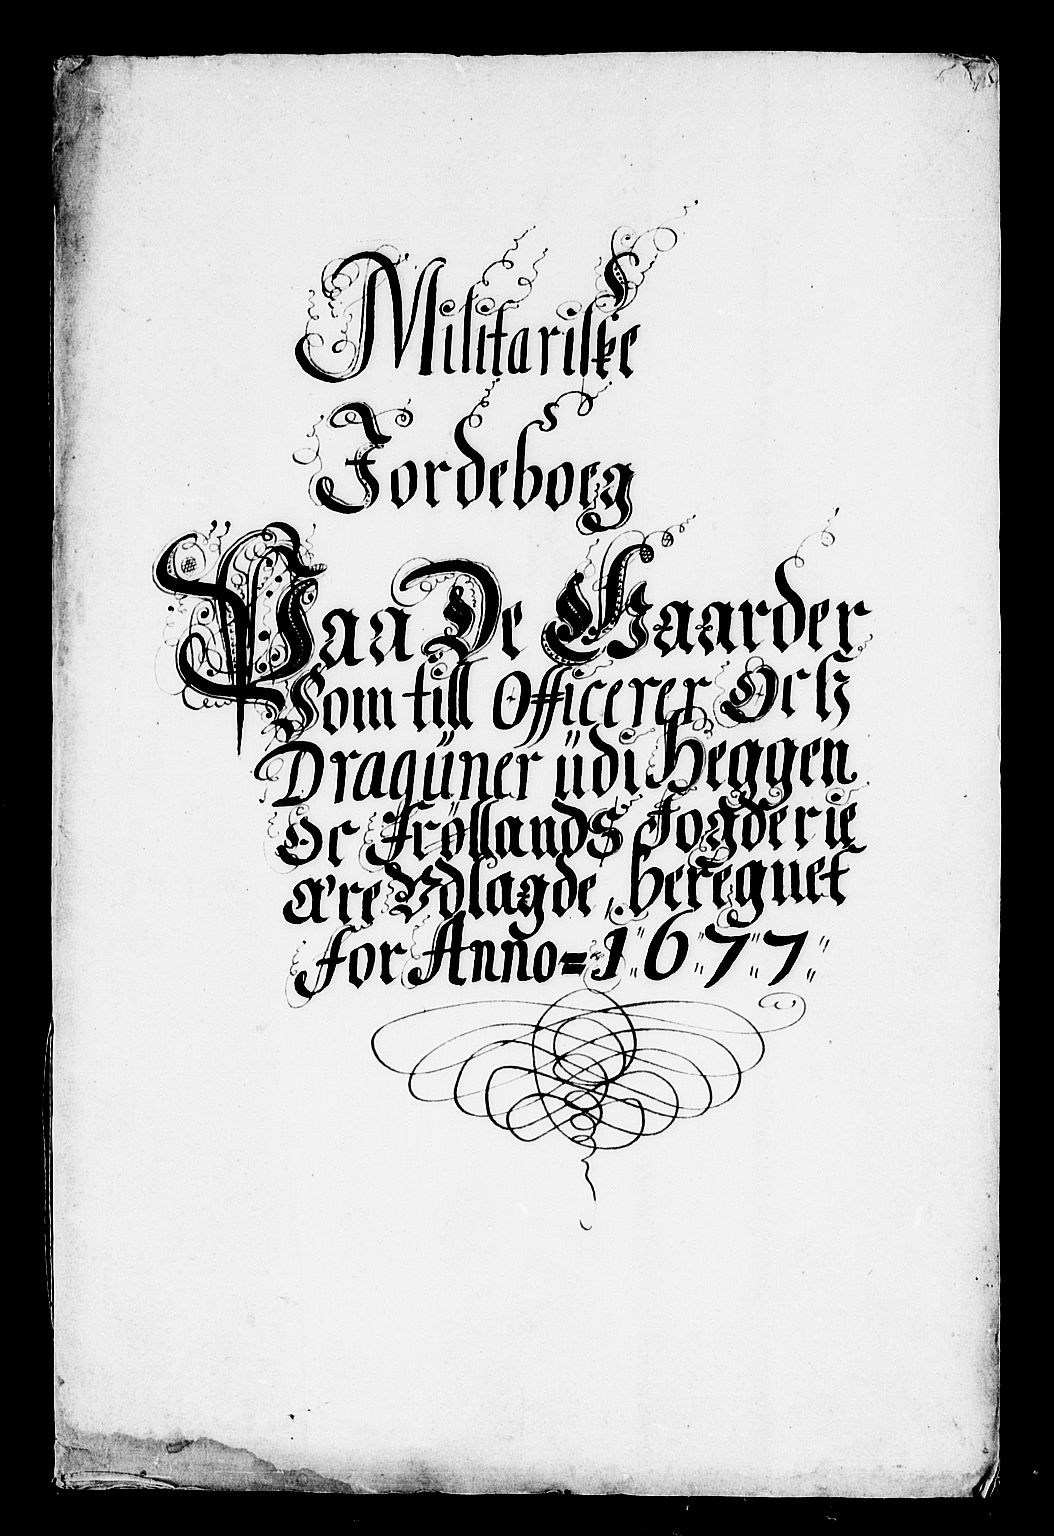 Militariske
Jordeboeg
Paa De Gaarder
Som till Officerer Och
Dragüner üdi Heggen
Oc Fröllands Fogderie
ære Vdlagde, beregnet
for Anno=1"677"